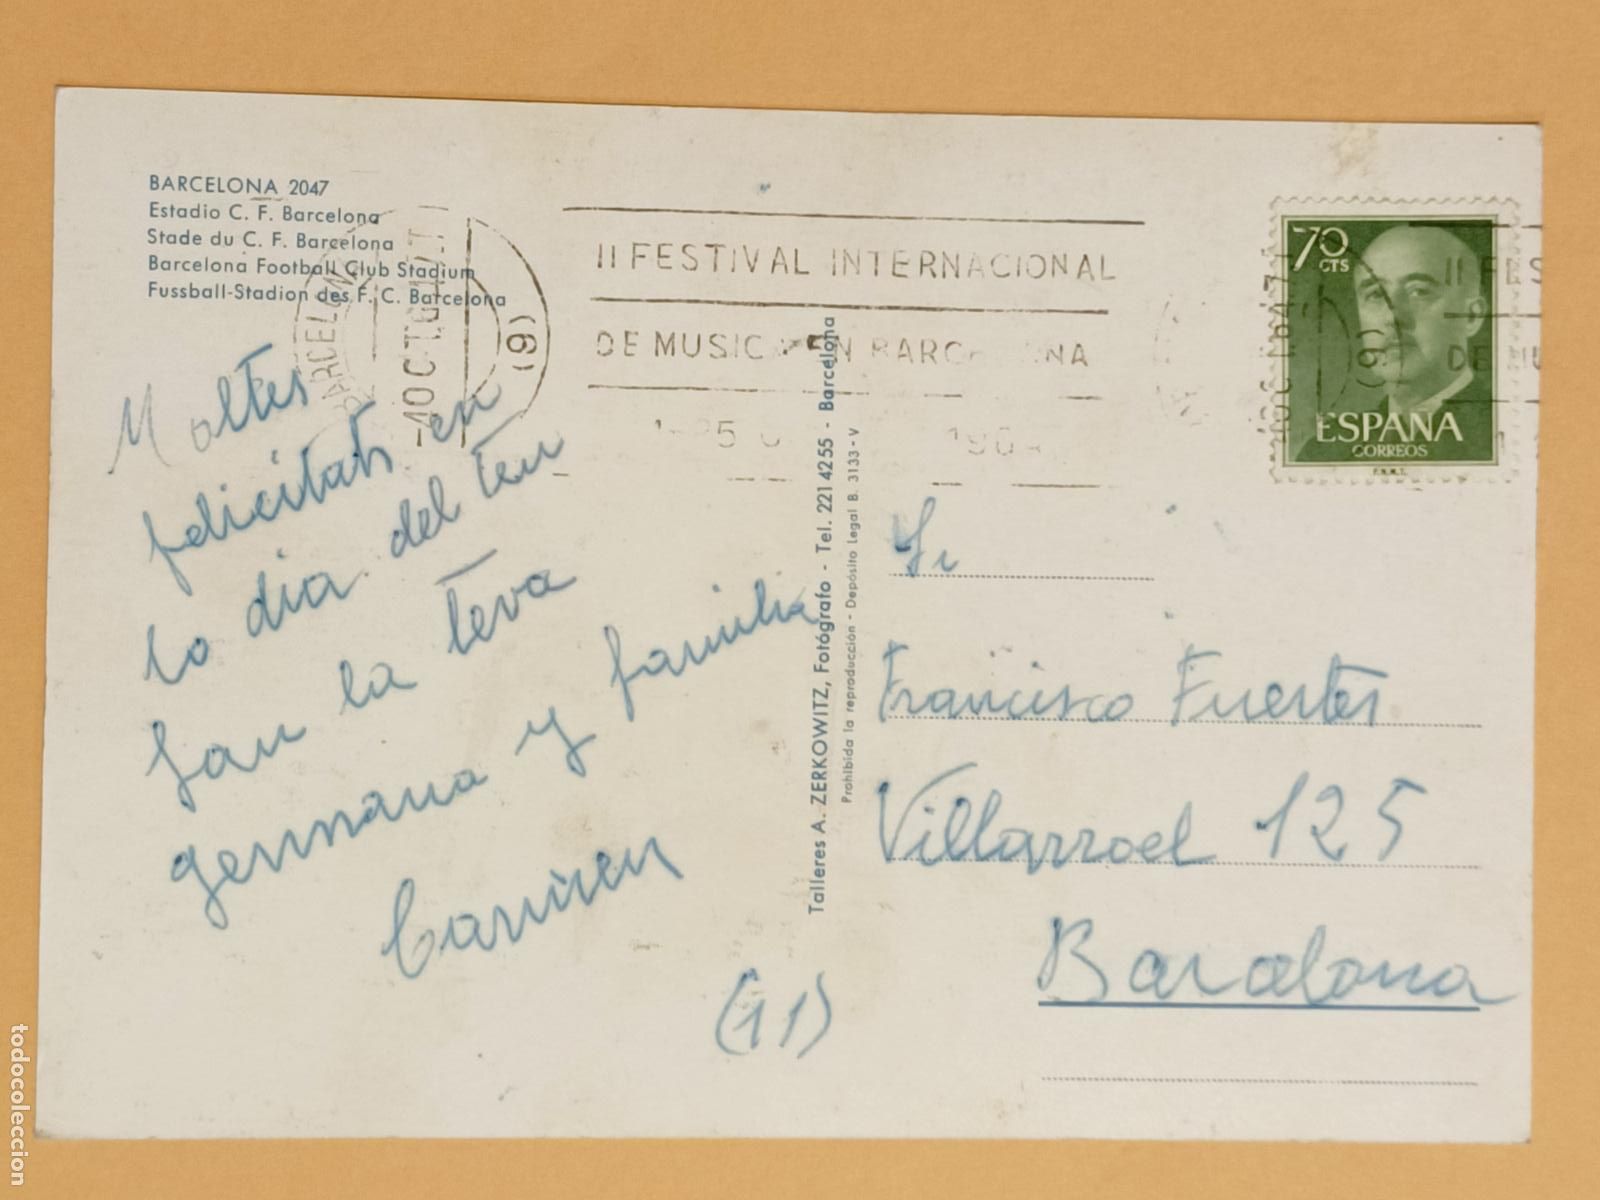 BARCELONA 2047
Estadio C. F. Barcelona
Stade du C. F. Barcelona
Barcelona Football Club Stadium
Fussball-Stadion des F. C. Barcelona
BARCELONA
-4OCT
(9)
II FESTIVAL INTERNACIONAL
DE MUSIC EN BARC NA
70
CTS
ESPAÑA
CORREOS
F.N.M.T.
II FES
DE MU
(9)
Moltes
felicitats en
lo dia del teu
San la teva
germana y familia
Carmen
(11)
Talleres A. ZERKOWITZ, Fotógrafo - Tel. 221 42 55 - Barcelona
Prohibida la reproducción - Depósito Legal B. 3133 - V
Sr
Francisco Fuertes
Villarroel 125
Barcelona
todocoleccion